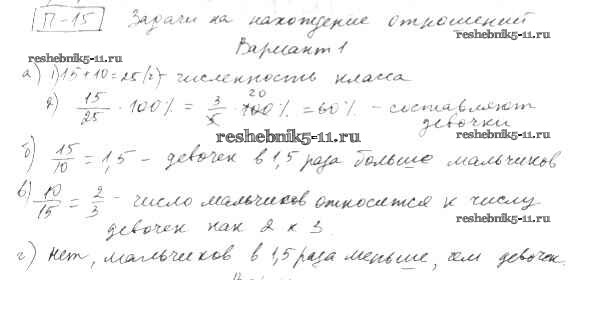 П-15 Задачи на нахождение отношений
reshebnik5-11.ru
Вариант 1
reshebnik5-11.ru
а) 1) 15+10=25(г)- численность класса
2) 15/25 · 100% = 3/5 · 100% 20 = 60% - составляют
девочки
reshebnik5-11.ru
reshebnik5-11.ru
б) 15/10 = 1,5 - девочек в 1,5 раза больше мальчиков
в) 10/15 = 2/3 - число мальчиков относится к числу
reshebnik5-11.ru
reshebnik5-11.ru
девочек как 2 к 3.
г) нет, мальчиков в 1,5 раза меньше, чем девочек.